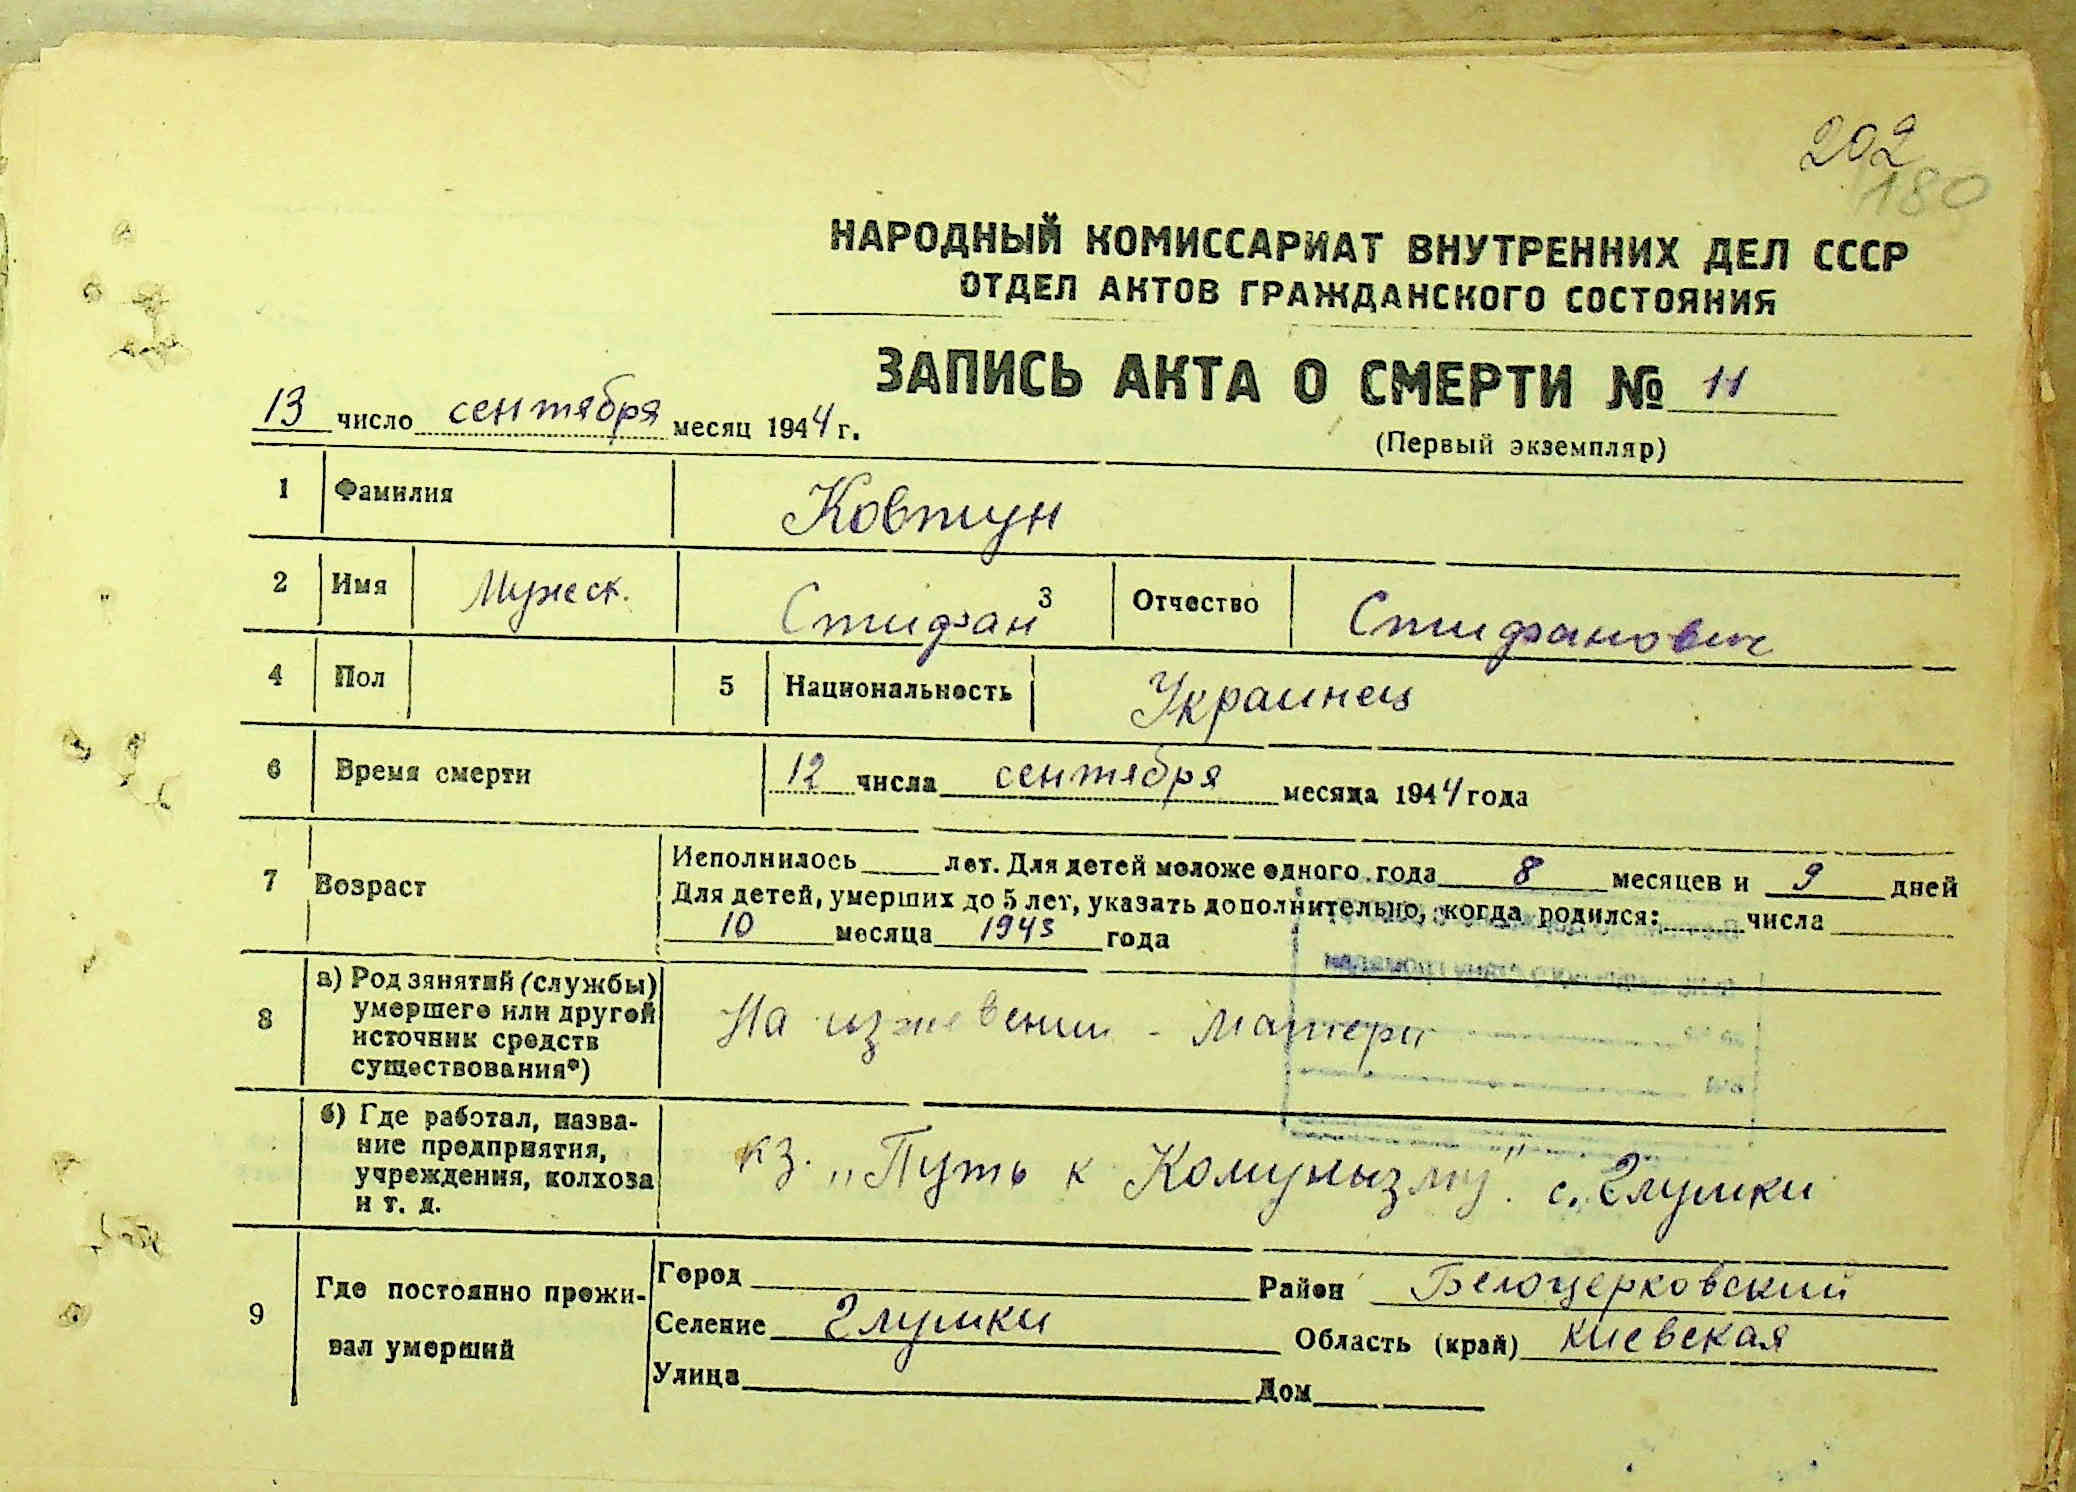 202
180
НАРОДНЫЙ КОМИССАРИАТ ВНУТРЕННИХ ДЕЛ СССР
ОТДЕЛ АКТОВ ГРАЖДАНСКОГО СОСТОЯНИЯ
ЗАПИСЬ АКТА О СМЕРТИ № 11
13 число сентября месяц 1944 г.
(Первый экземпляр)
1 Фамилия Ковтун
2 Имя Мужеск. Стифан 3 Отчество Стифанович
4 Пол 5 Национальность Украинец
6 Время смерти 12 числа сентября месяца 1944 года
7 Возраст
Исполнилось лет. Для детей моложе одного года 8 месяцев и 9 дней
Для детей, умерших до 5 лет, указать дополнительно, когда родился: числа
10 месяца 1943 года
8 а) Род занятий (службы)
умершего или другой
источник средств
существования*)
На изжевении - матери
б) Где работал, назва-
ние предприятия,
учреждения, колхоза
и т. д.
кз. „Путь к Комунызму". с. Глушки
9 Где постоянно прожи-
вал умерший
Город Район Белоцерковский
Селение Глушки Область (край) киевская
Улица Дом